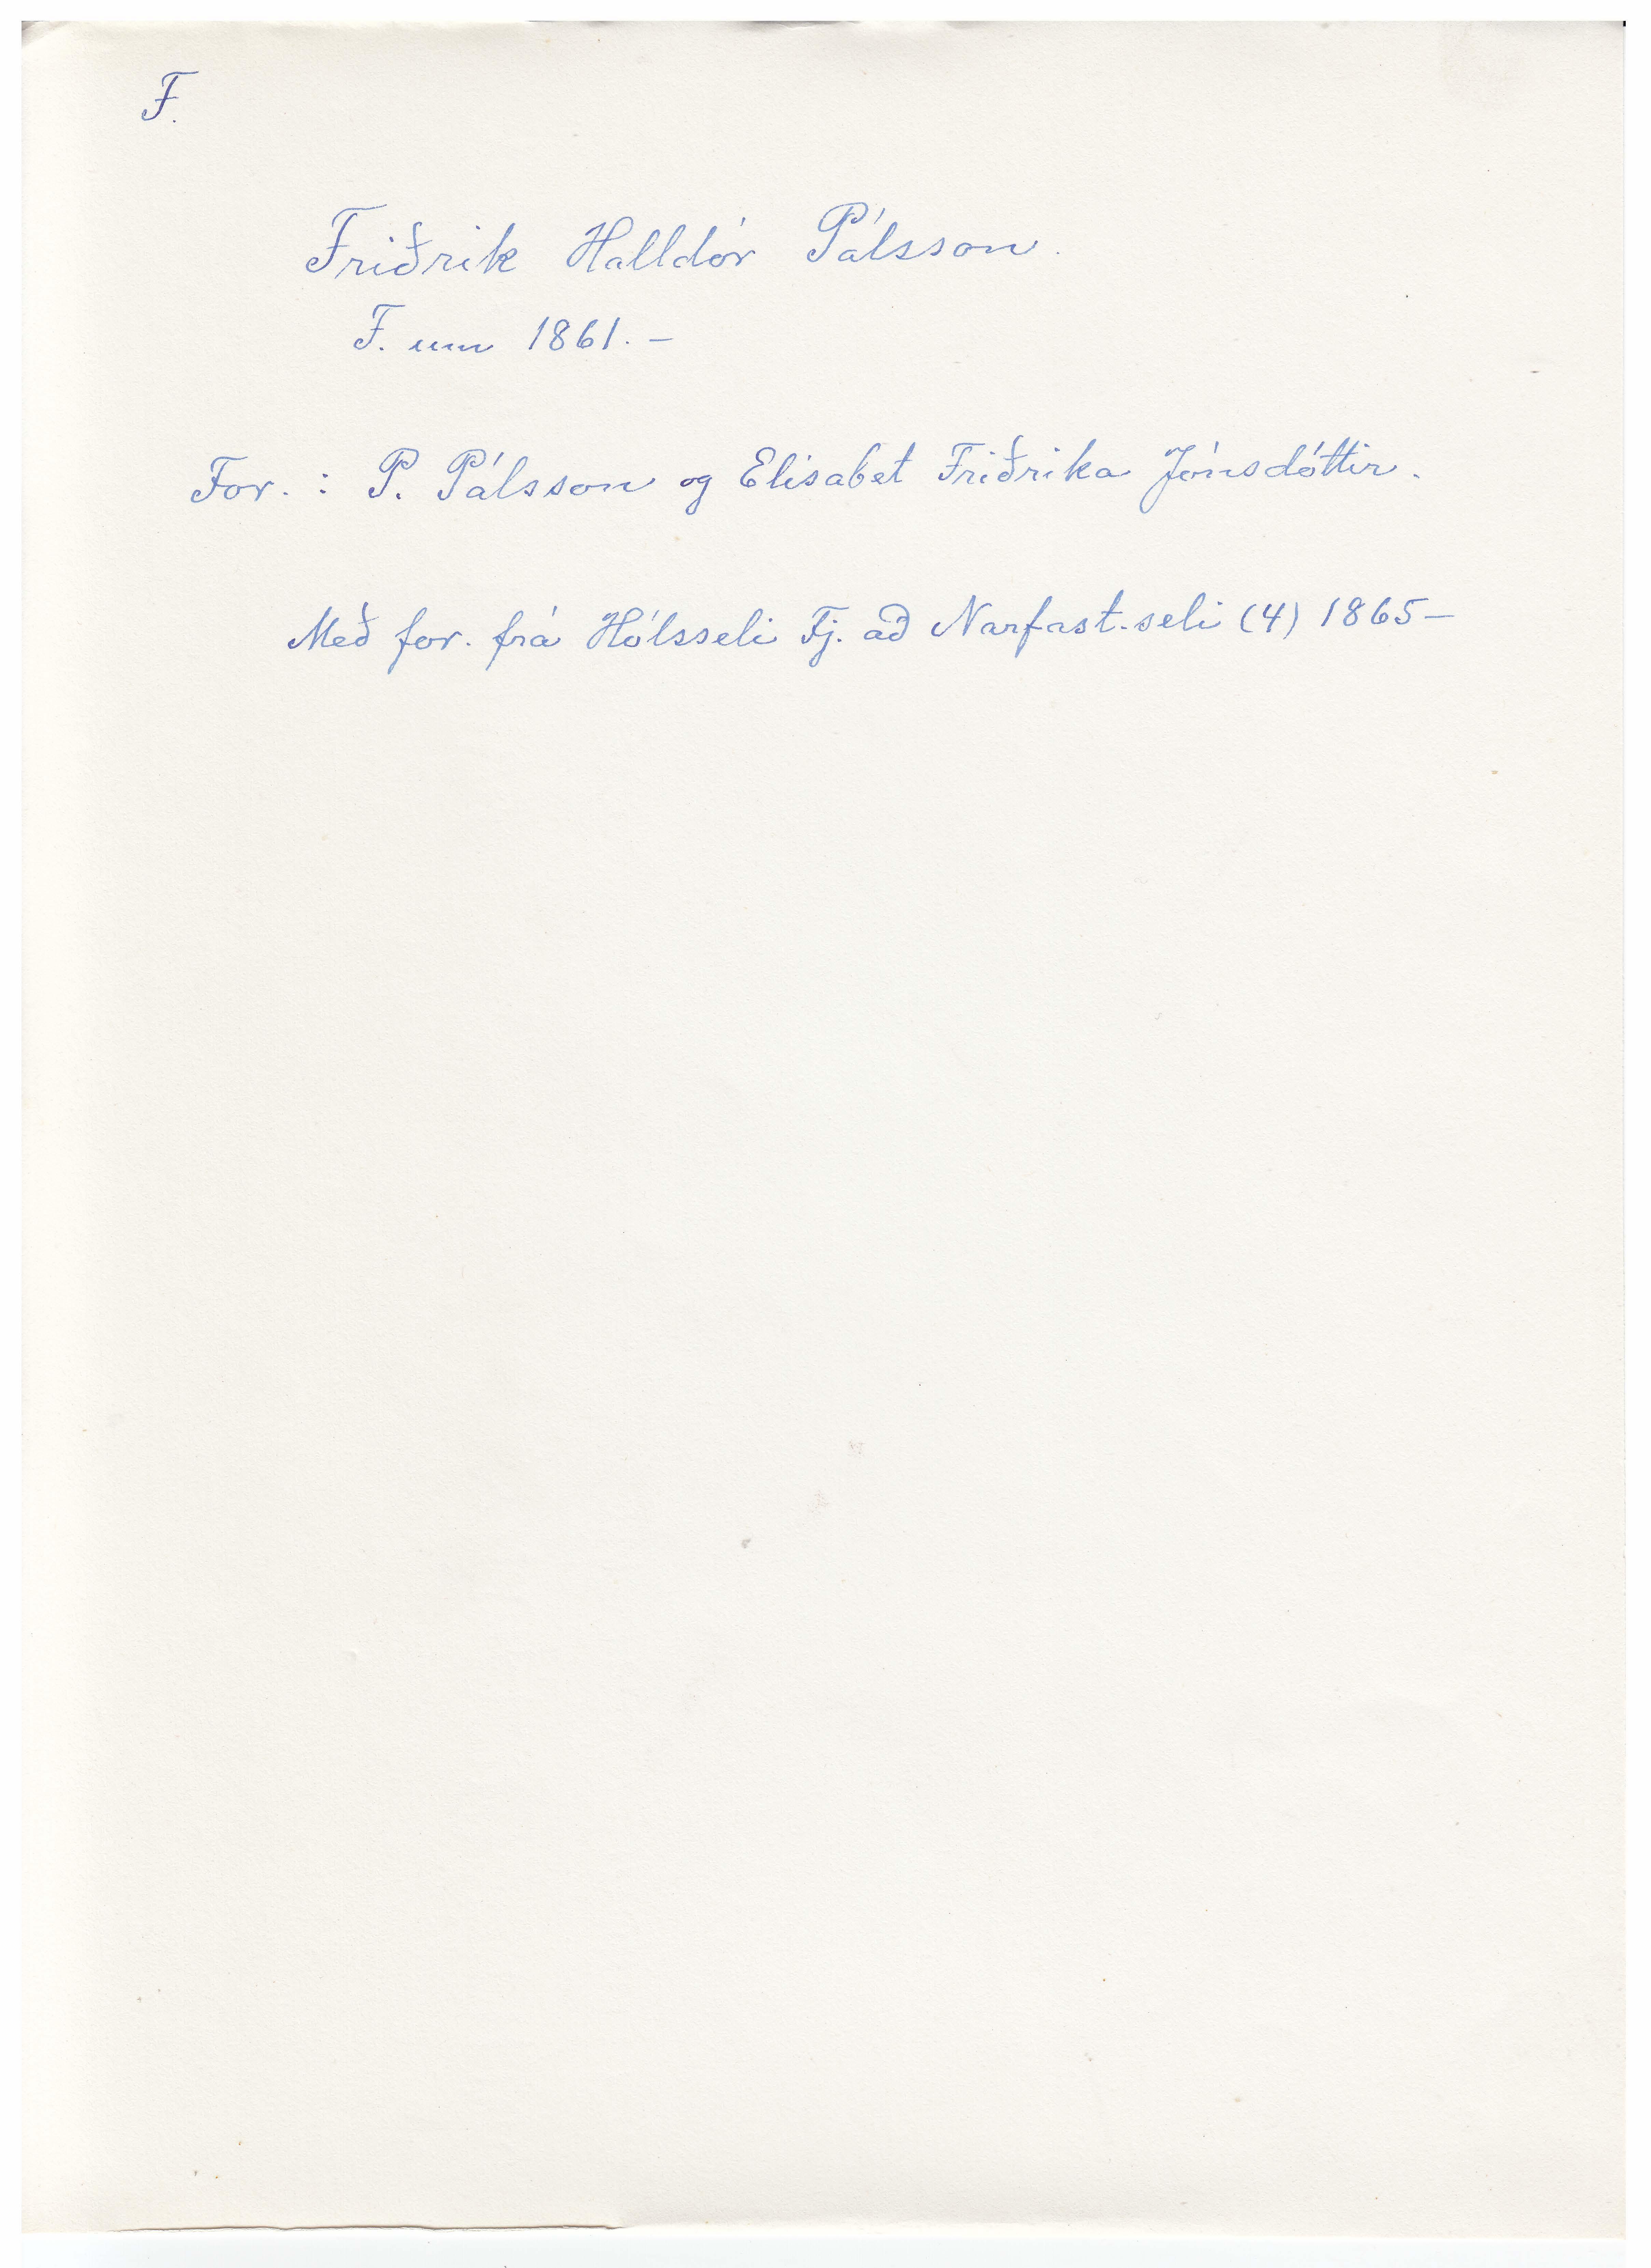 F.
Friðrik Halldór Pálsson.
F. um 1861. –
For. : P. Pálsson og Elísabet Friðrika Jónsdóttir.
Með for. frá Hólsseli Fj. að Narfast.seli (4) 1865 –